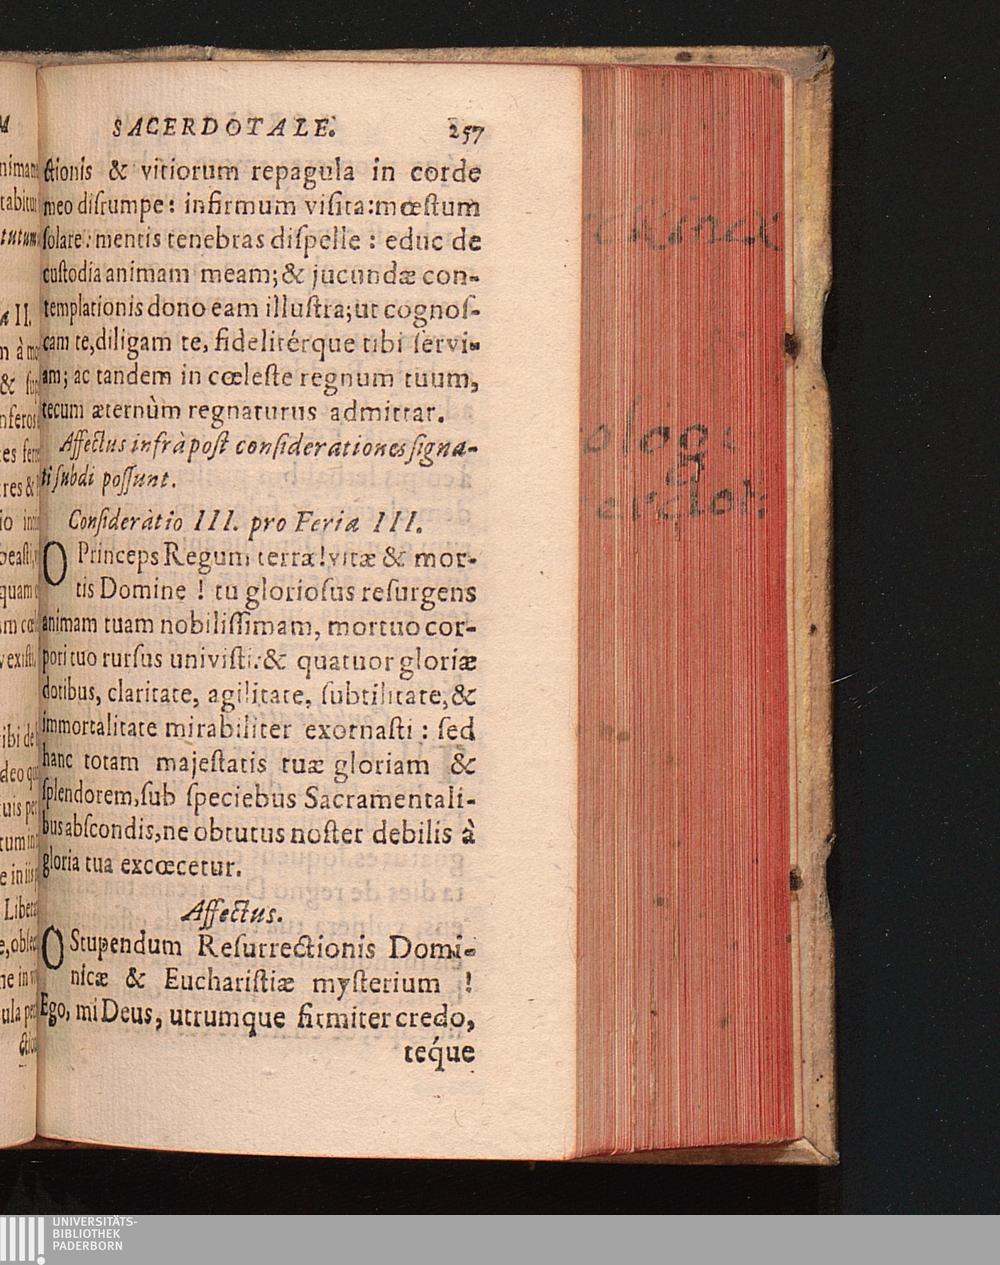 SACERDOTALE. 257
ctionis & vitiorum repagula in corde
meo disrumpe: infirmum visita: mœstum
solare: mentis tenebras dispelle: educ de
custodia animam meam; & jucundæ con-
templationis dono eam illustra; ut cognos-
cam te, diligam te, fidelitérque tibi servi-
am; ac tandem in cœleste regnum tuum,
tecum æternùm regnaturus admittar.
Affectus infrà post considerationes signa-
ti subdi possunt.
Consideratio III. pro Feria III.
O Princeps Regum terræ! vitæ & mor-
tis Domine! tu gloriosus resurgens
animam tuam nobilissimam, mortuo cor-
pori tuo rursus univisti: & quatuor gloriæ
dotibus, claritate, agilitate, subtilitate, &
immortalitate mirabiliter exornasti: sed
hanc totam majestatis tuæ gloriam &
splendorem, sub speciebus Sacramentali-
bus abscondis, ne obtutus noster debilis à
gloria tua excœcetur.
Affectus.
O Stupendum Resurrectionis Domi-
nicæ & Eucharistiæ mysterium!
Ego, mi Deus, utrumque firmiter credo,
teque
UNIVERSITÄTS-
BIBLIOTHEK
PADERBORN